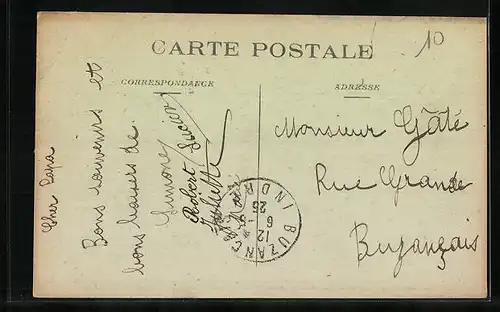 CARTE POSTALE
10
CORRESPONDANCE
ADRESSE
Cher Papa
Bons souvenirs et
bons baisers de
Simone
Robert
Lucien
Monsieur Gâté
Rue Grande
Buzançais
BUZANÇAIS
12 - 6
26
INDRE